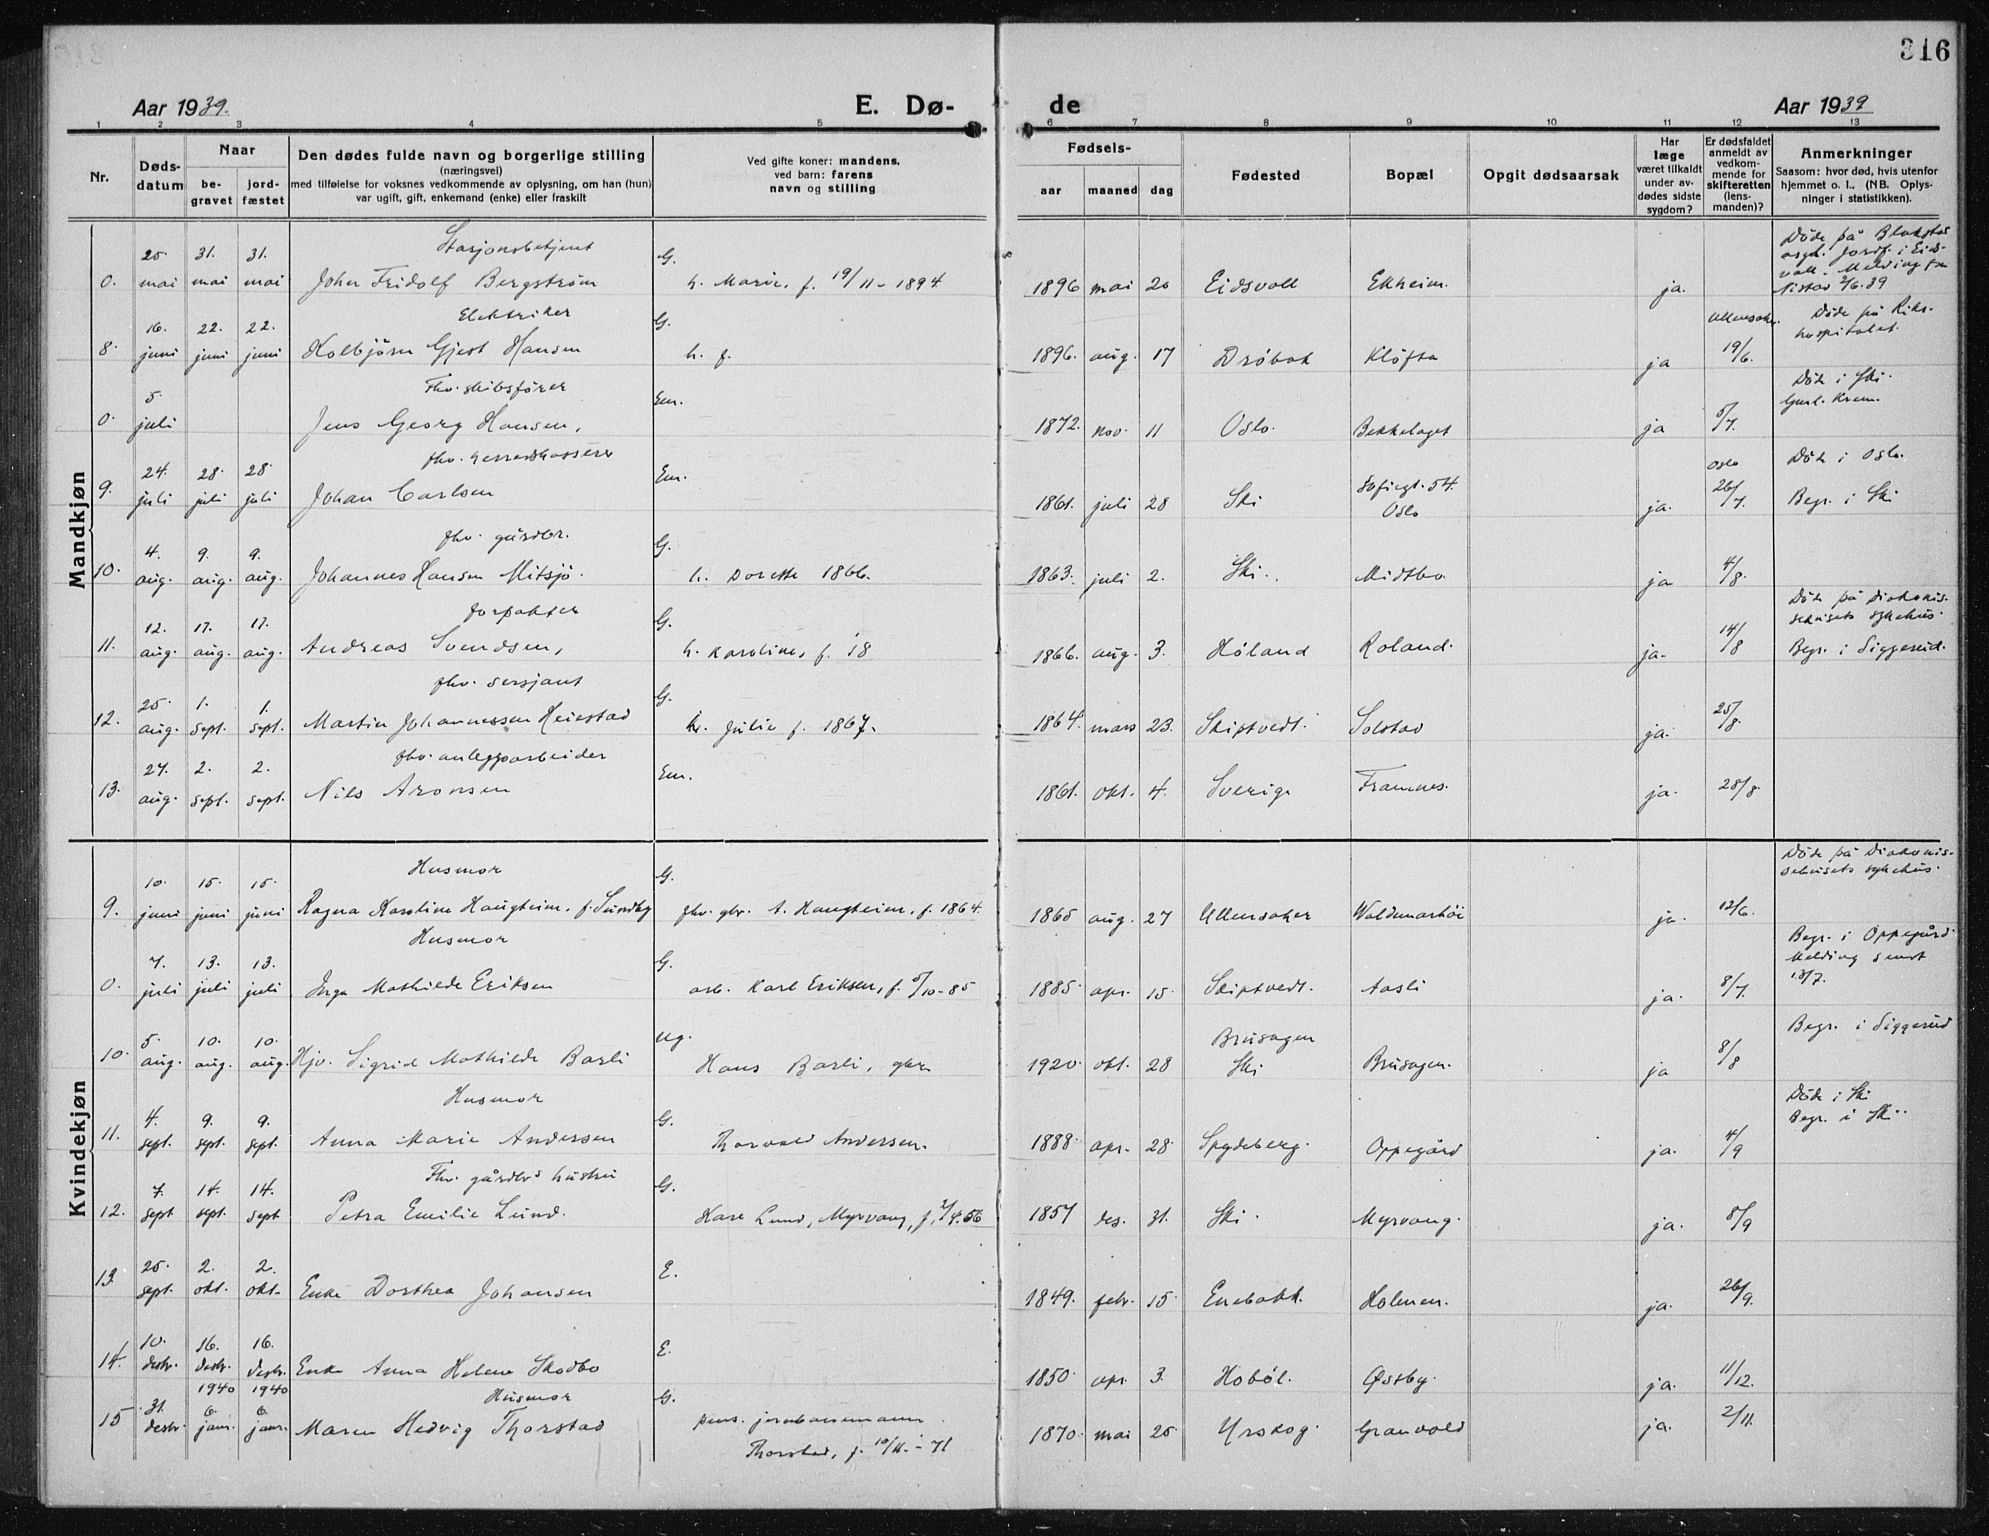 316
Aar 1939.
E. Dø-
de
Aar 1939
1 2 3 4 5 6 7 8 9 10 11 12 13
Nr.
Døds-
datum
Naar
be-
gravet
jord-
fæstet
Den dødes fulde navn og borgerlige stilling
(næringsvei)
med tilføielse for voksnes vedkommende av oplysning, om han (hun)
var ugift, gift, enkemand (enke) eller fraskilt
Ved gifte koner: mandens,
ved barn: farens
navn og stilling
Fødsels-
aar maaned dag
Fødested
Bopæl
Opgit dødsaarsak
Har
læge
været tilkaldt
under av-
dødes sidste
sygdom?
Er dødsfaldet
anmeldt av
vedkom-
mende for
skifteretten
(lens-
manden)?
Anmerkninger
Saasom: hvor død, hvis utenfor
hjemmet o. l.. (NB. Oplys-
ninger i statistikken).
Mandkjøn
Stasjonsbetjent
0. 25. mai 31. mai 31. mai John Fridolf Bergstrøm G. h. Marie, f. 19/11-1894 1896 mai 20 Eidsvoll Ekheim. ja.
Døde på Blakstad
asyl. Jordf. i Eids-
voll. Melding fra
Nistad 2/6.39
Elektriker
8. 16. juni 22. juni 22. juni Kolbjørn Gjest Hansen G. h. f. 1896. aug. 17 Drøbak Kløfta ja Ullensaker. 19/6.
Døde på Riks-
hospitalet.
Fhv. skibsfører
0. 5. juli Jens Georg Hansen, Em. 1872. nov. 11 Oslo. Bekkelaget ja 5/7.
Døde i Ski.
Krem.
fhv. herredskasserer
9. 24. juli 28. juli 28. juli Johan Carlsen Em. 1861. juli 28 Ski Sofiegt. 54.
Oslo ja. Oslo 26/7.
Døde i Oslo.
Begr. i Ski
fhv. gårdbr.
10. 4. aug. 9. aug. 9. aug. Johannes Hansen Mitsjø. G. h. Dorette 1866. 1863. juli 2. Ski. Midtbo ja 4/8.
forpakter
11. 12. aug. 17. aug. 17. aug. Andreas Svendsen, G. h. Karoline, f. 18 1866. aug. 3. Høland Roland. ja. 14/8
Døde på Diakonis-
sehusets sykehus.
Begr. i Siggerud.
fhv. sersjant
12. 25. aug. 1. sept. 1. sept. Martin Johannessen Heiestad G. h. Julie f. 1867. 1864. mars 23. Skiptvedt. Solstad ja. 25/8.
fhv. anleggsarbeider
13. 27. aug. 2. sept. 2. sept. Nils Aronsen Em. 1861. okt. 4. Sverige Framnes. ja. 28/8.
Kvindekjøn
Husmor
9. 10. juni 15. juni 15. juni Ragna Karoline Haugheim, f. Sundby G. fhv. gbr. A. Haugheim, f. 1864. 1865 aug. 27 Ullensaker Waldemarhøi ja. 12/6.
Døde på Diakonis-
sehusets sykehus.
Husmor
0. 7. juli 13. juli 13. juli Inga Mathilde Eriksen G. arb. Karl Eriksen, f. 5/10-85 1885. apr. 15. Skiptvedt. Aasli ja. 8/7.
Begr. i Oppegård
Melding sendt
13/7.
10. 5. aug. 10. aug. 10. aug. Hjv. Sigrid Mathilde Barli ug. Hans Barli, gbr. 1920. okt. 28 Brusagen
Ski Brusagen. ja 8/8
Begr. i Siggerud
Husmor
11. 4. sept. 9. sept. 9. sept. Anna Marie Andersen G. Thorvald Andersen. 1888. apr. 28. Spydeberg. Oppegård ja. 4/9
Døde i Ski
Begr. i Ski.
Fhv. gårdbr's hustru
12. 7. sept 14. sept. 14. sept Petra Emilie Lund. G. Lund, Myrvang, f. 2/4.56 1857 des. 31. Ski. Myrvang. ja. 8/9
13. 25. sept. 2. okt. 2. okt. Enke Dorthea Johansen E. 1849. febr. 15. Enebakk. Holmen. ja. 26/9.
14. 10. desbr. 16. desbr. 16. desbr. Enke Anna Helene Skodbo E. 1850. apr. 3. Hobøl. Østby. ja. 11/12.
1940 1940 Husmor
15 31. desbr. 6. janr. 6. janr. Maren Hedvig Thorstad G. pens. jernbanemann
Thorstad, f. 10/11.-71 1870. mai 25. Urskog Granvold ja. 2/11.